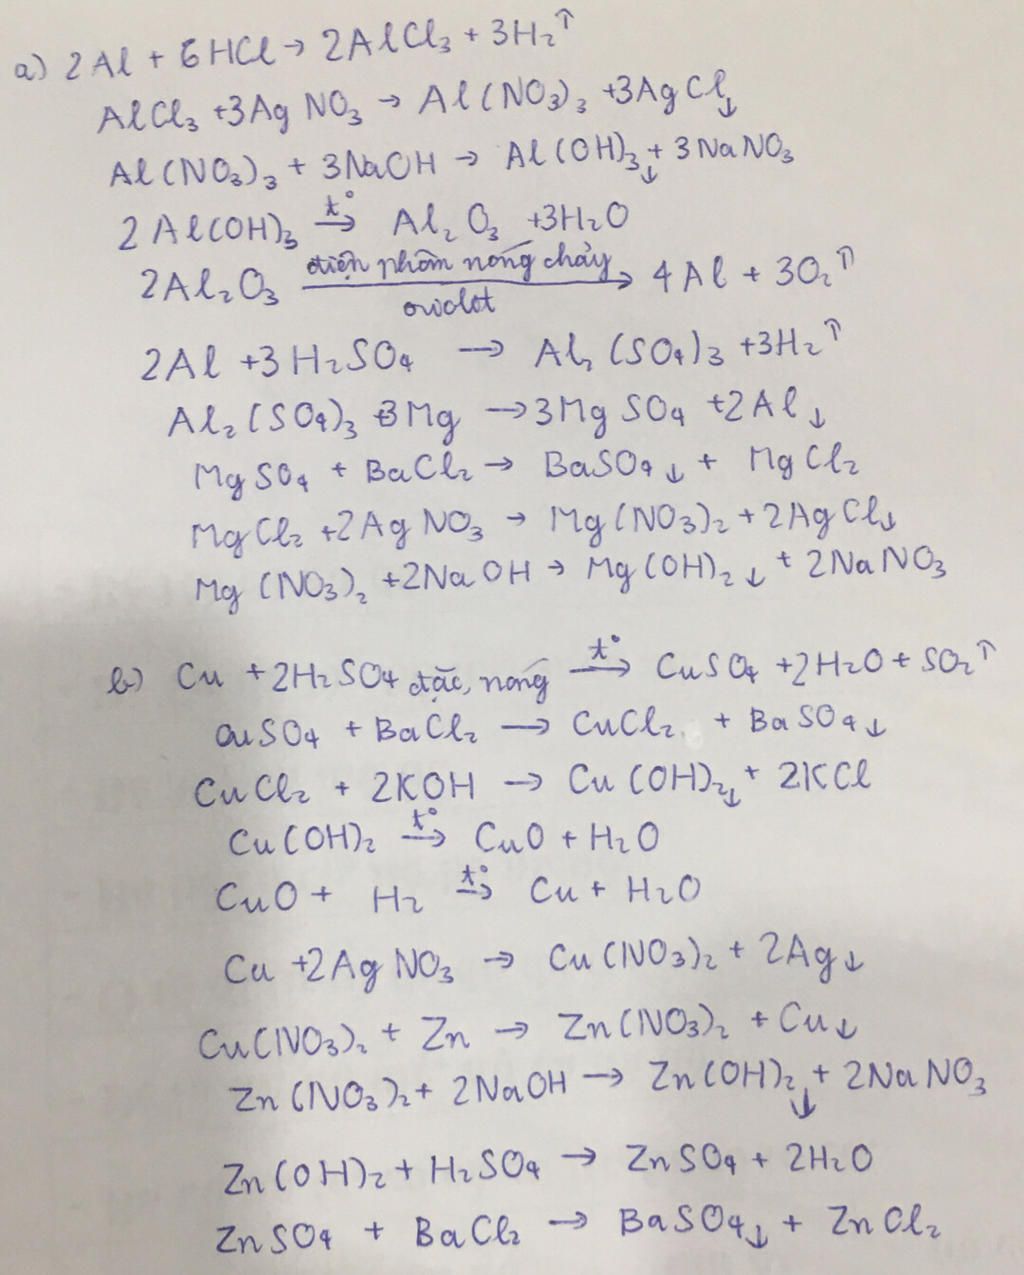 a) 2Al + 6HCl → 2AlCl₃ + 3H₂↑
AlCl₃ + 3AgNO₃ → Al(NO₃)₃ + 3AgCl↓
Al(NO₃)₃ + 3NaOH → Al(OH)₃↓ + 3NaNO₃
2Al(OH)₃ t°→ Al₂O₃ + 3H₂O
2Al₂O₃ điện phân nóng chảy→ 4Al + 3O₂↑
criolit
2Al + 3H₂SO₄ → Al₂(SO₄)₃ + 3H₂↑
Al₂(SO₄)₃ + 3Mg → 3MgSO₄ + 2Al↓
MgSO₄ + BaCl₂ → BaSO₄↓ + MgCl₂
MgCl₂ + 2AgNO₃ → Mg(NO₃)₂ + 2AgCl↓
Mg(NO₃)₂ + 2NaOH → Mg(OH)₂↓ + 2NaNO₃
b) Cu + 2H₂SO₄ đặc, nóng t°→ CuSO₄ + 2H₂O + SO₂↑
CuSO₄ + BaCl₂ → CuCl₂ + BaSO₄↓
CuCl₂ + 2KOH → Cu(OH)₂↓ + 2KCl
Cu(OH)₂ t°→ CuO + H₂O
CuO + H₂ t°→ Cu + H₂O
Cu + 2AgNO₃ → Cu(NO₃)₂ + 2Ag↓
Cu(NO₃)₂ + Zn → Zn(NO₃)₂ + Cu↓
Zn(NO₃)₂ + 2NaOH → Zn(OH)₂↓ + 2NaNO₃
Zn(OH)₂ + H₂SO₄ → ZnSO₄ + 2H₂O
ZnSO₄ + BaCl₂ → BaSO₄↓ + ZnCl₂